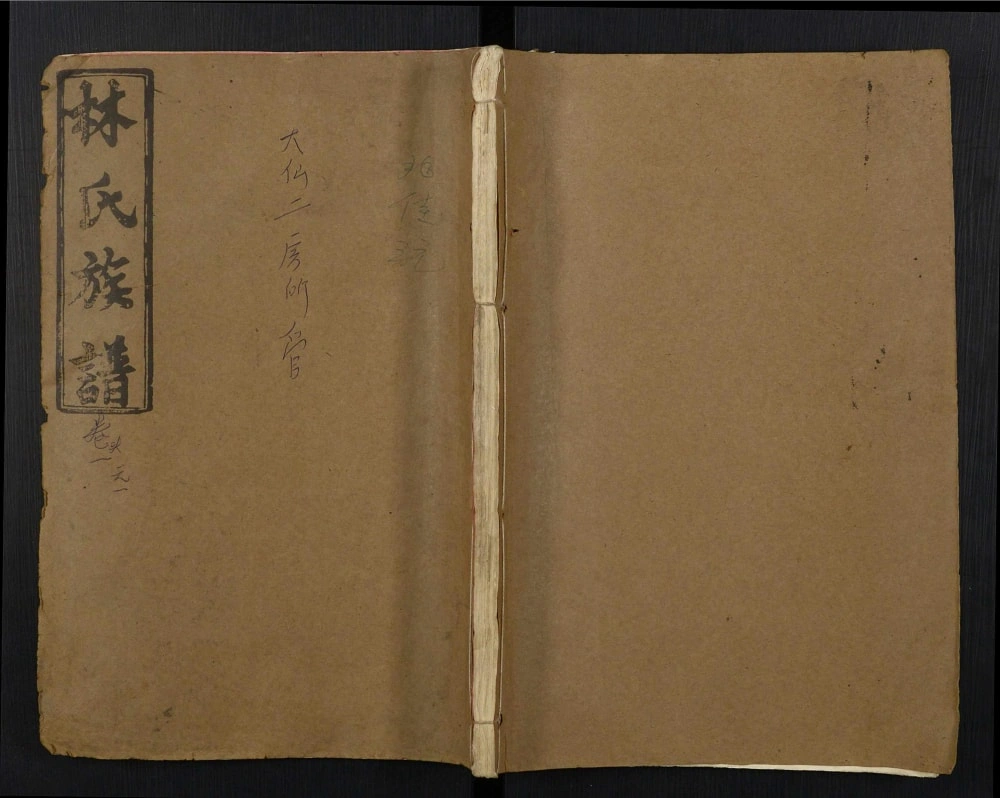 林氏族譜
卷一
大仙二房所管